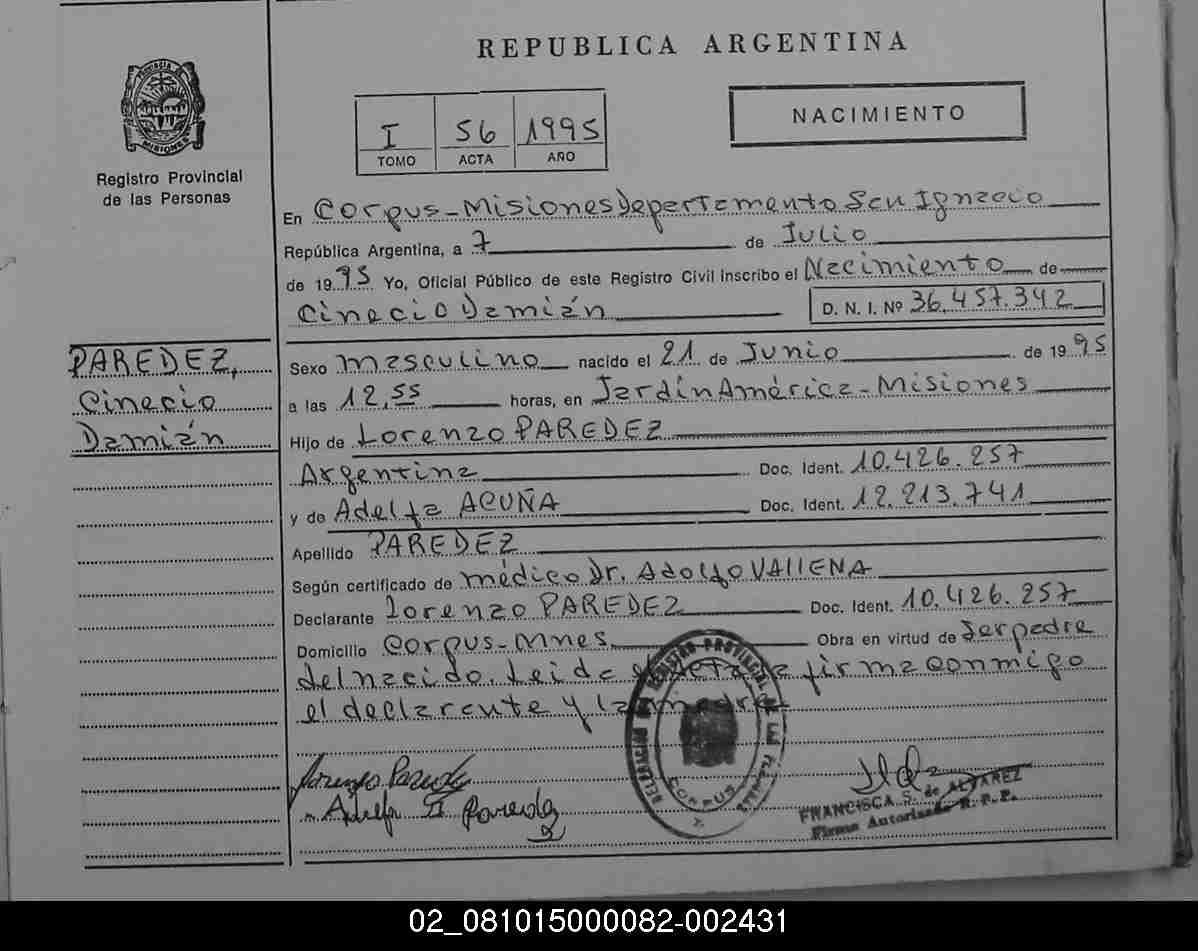 REPUBLICA ARGENTINA
PROVINCIA DE
MISIONES
Registro Provincial
de las Personas
I 56 1995
TOMO ACTA AÑO
NACIMIENTO
En Corpus-Misiones Departamento San Ignacio
República Argentina, a 7 de Julio
de 1995 Yo, Oficial Público de este Registro Civil inscribo el Nacimiento de
Cinecio Damián D. N. I. Nº 36.457.342
PAREDEZ,
Cinecio
Damián
Sexo Masculino nacido el 21 de Junio de 1995
a las 12,55 horas, en Jardín América-Misiones
Hijo de Lorenzo PAREDEZ
Argentina Doc. Ident. 10.426.257
y de Adelfa ACUÑA Doc. Ident. 12.213.741
Apellido PAREDEZ
Según certificado de médico Dr. Adolfo VALLENA
Declarante Lorenzo PAREDEZ Doc. Ident. 10.426.257
Domicilio Corpus-Mnes. Obra en virtud de Ser padre
del nacido. Leida el acta la firma conmigo
el declarante y la madre
DELEGACION DEL REGISTRO PROVINCIAL DE LAS PERSONAS
CORPUS
Lorenzo Paredez
Adelfa Paredez
FRANCISCA S. de ALVAREZ
Firma Autorizada R. P. P.
02_081015000082-002431